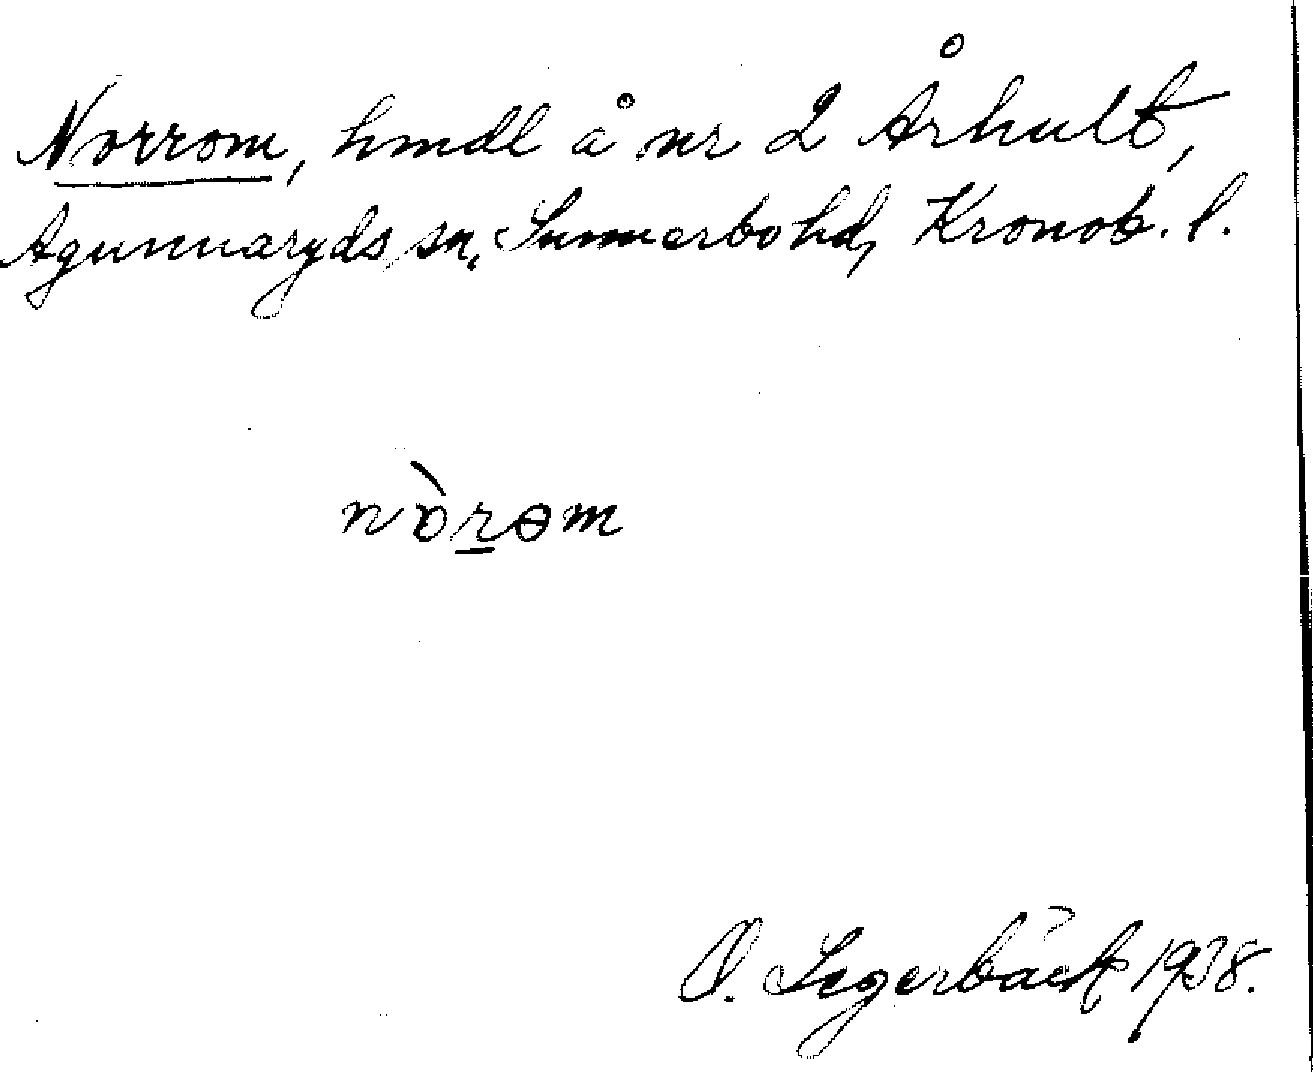 Norrom, hmdl å nr 2 Århult,
Agunnaryds sn, Sunnerbo hd, Kronob. l.
nòrɵm
O. Segerbäck 1938.